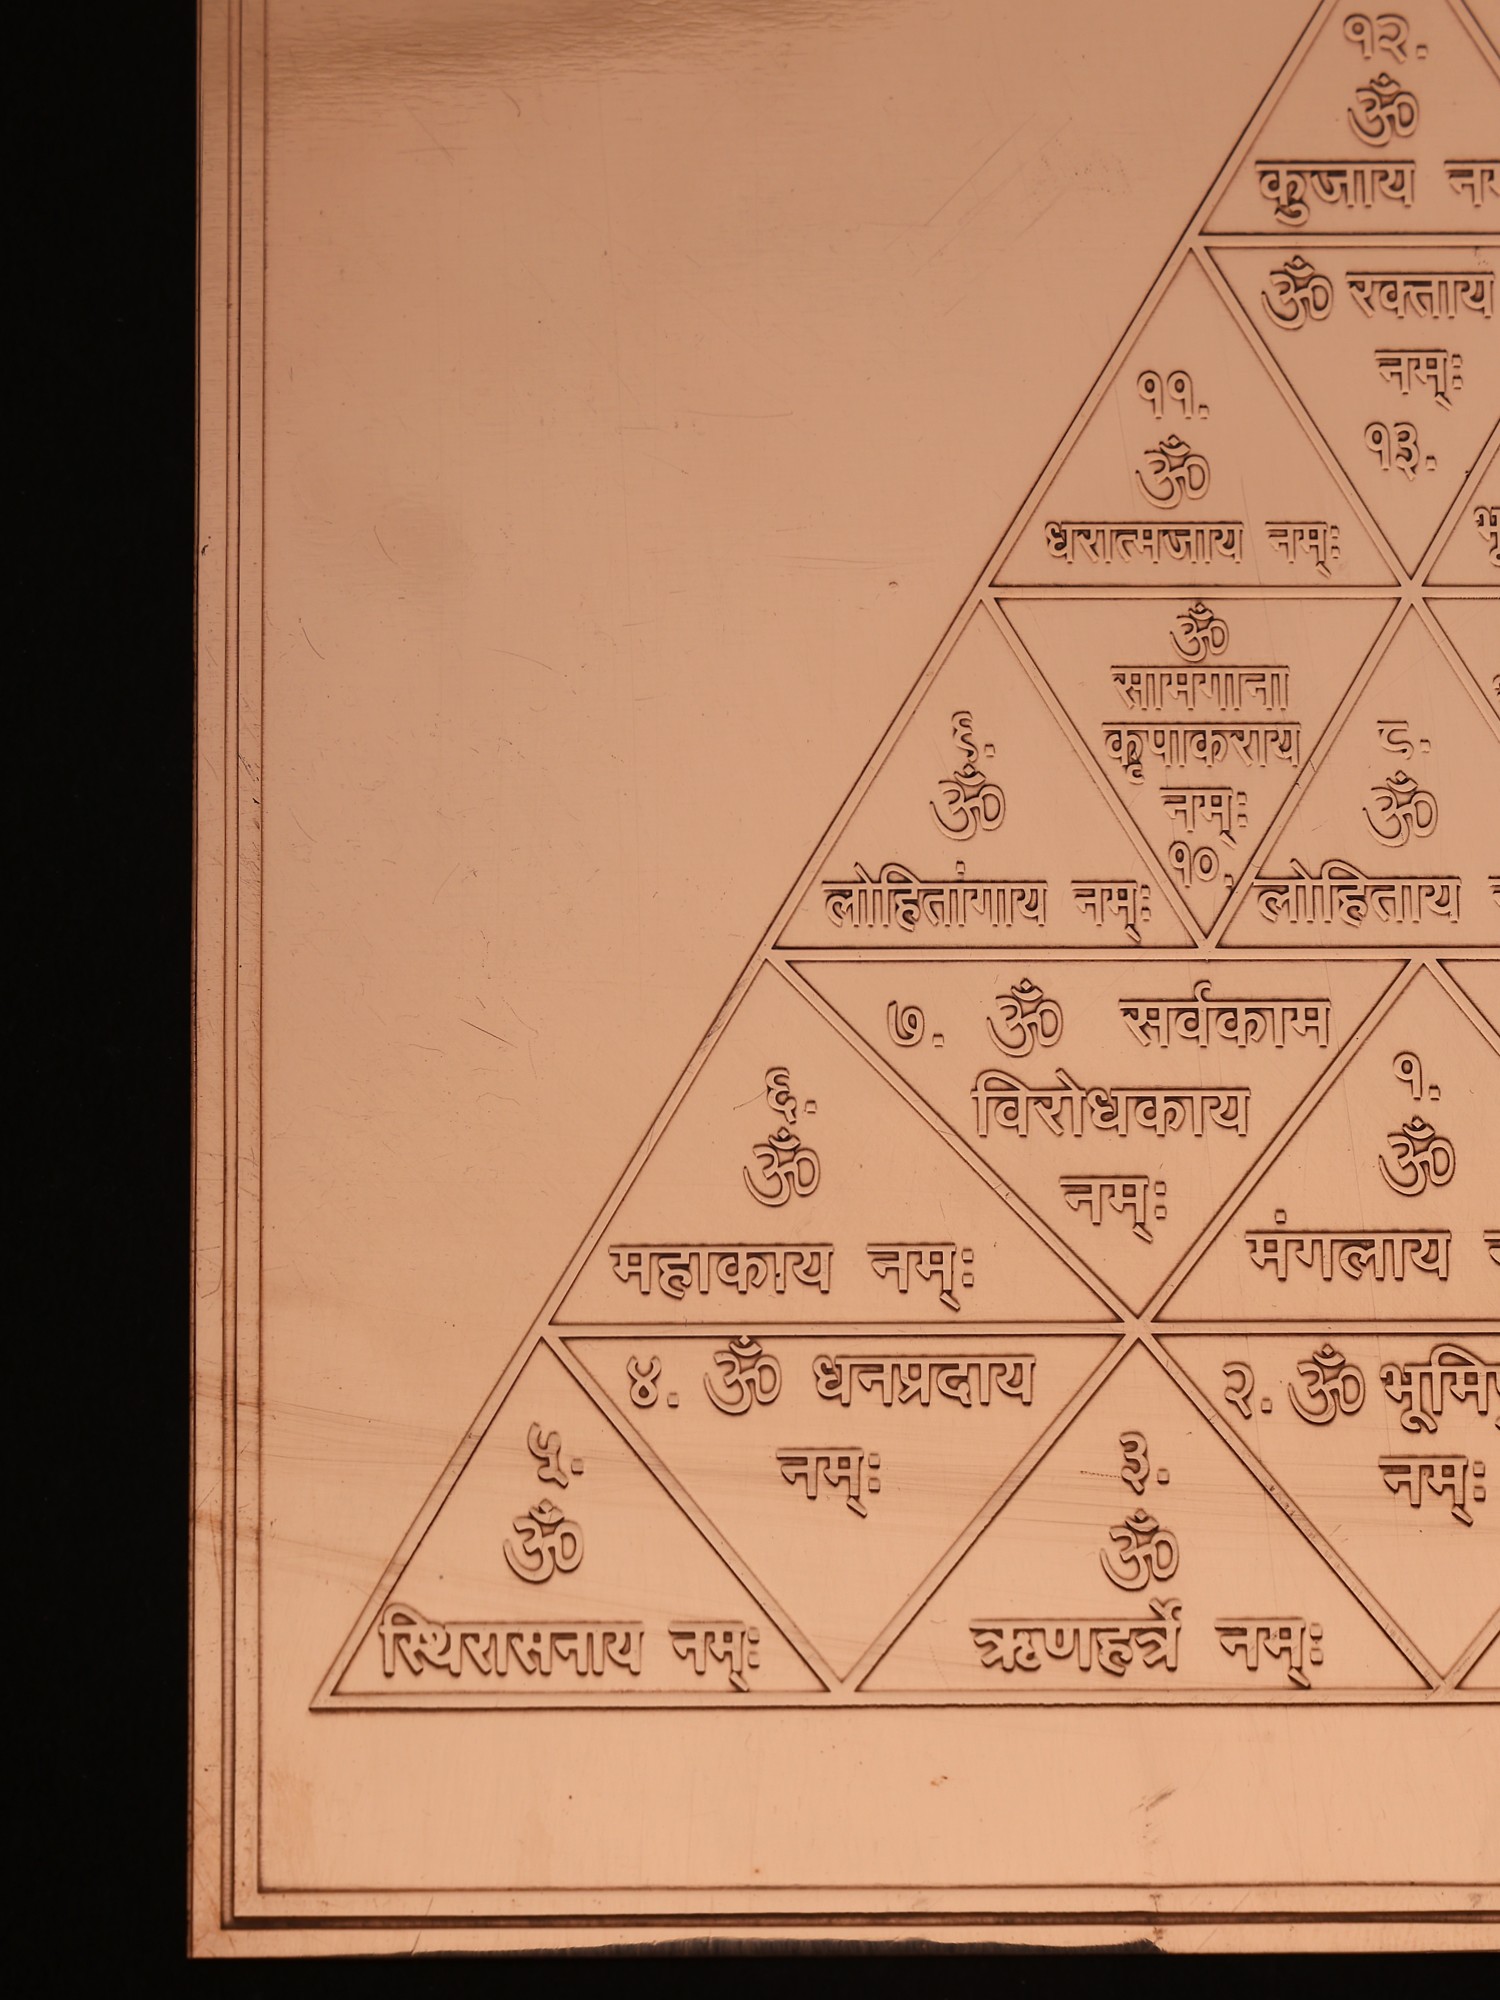 १२.
ॐ
कुजाय
ॐ रक्ताय
नम्ः
१३.
११.
ॐ
धरात्मजाय नम्ः
ॐ
सामगाना
कृपाकराय
नम्ः
१०.
९.
ॐ
लोहितांगाय नम्ः
८.
ॐ
लोहिताय
७. ॐ सर्वकाम
विरोधकाय
नम्ः
६.
ॐ
महाकाय नम्ः
१.
ॐ
मंगलाय
४. ॐ धनप्रदाय
नम्ः
२. ॐ
नम्ः
५.
ॐ
स्थिरासनाय नम्ः
३.
ॐ
ऋणहर्त्रे नम्ः